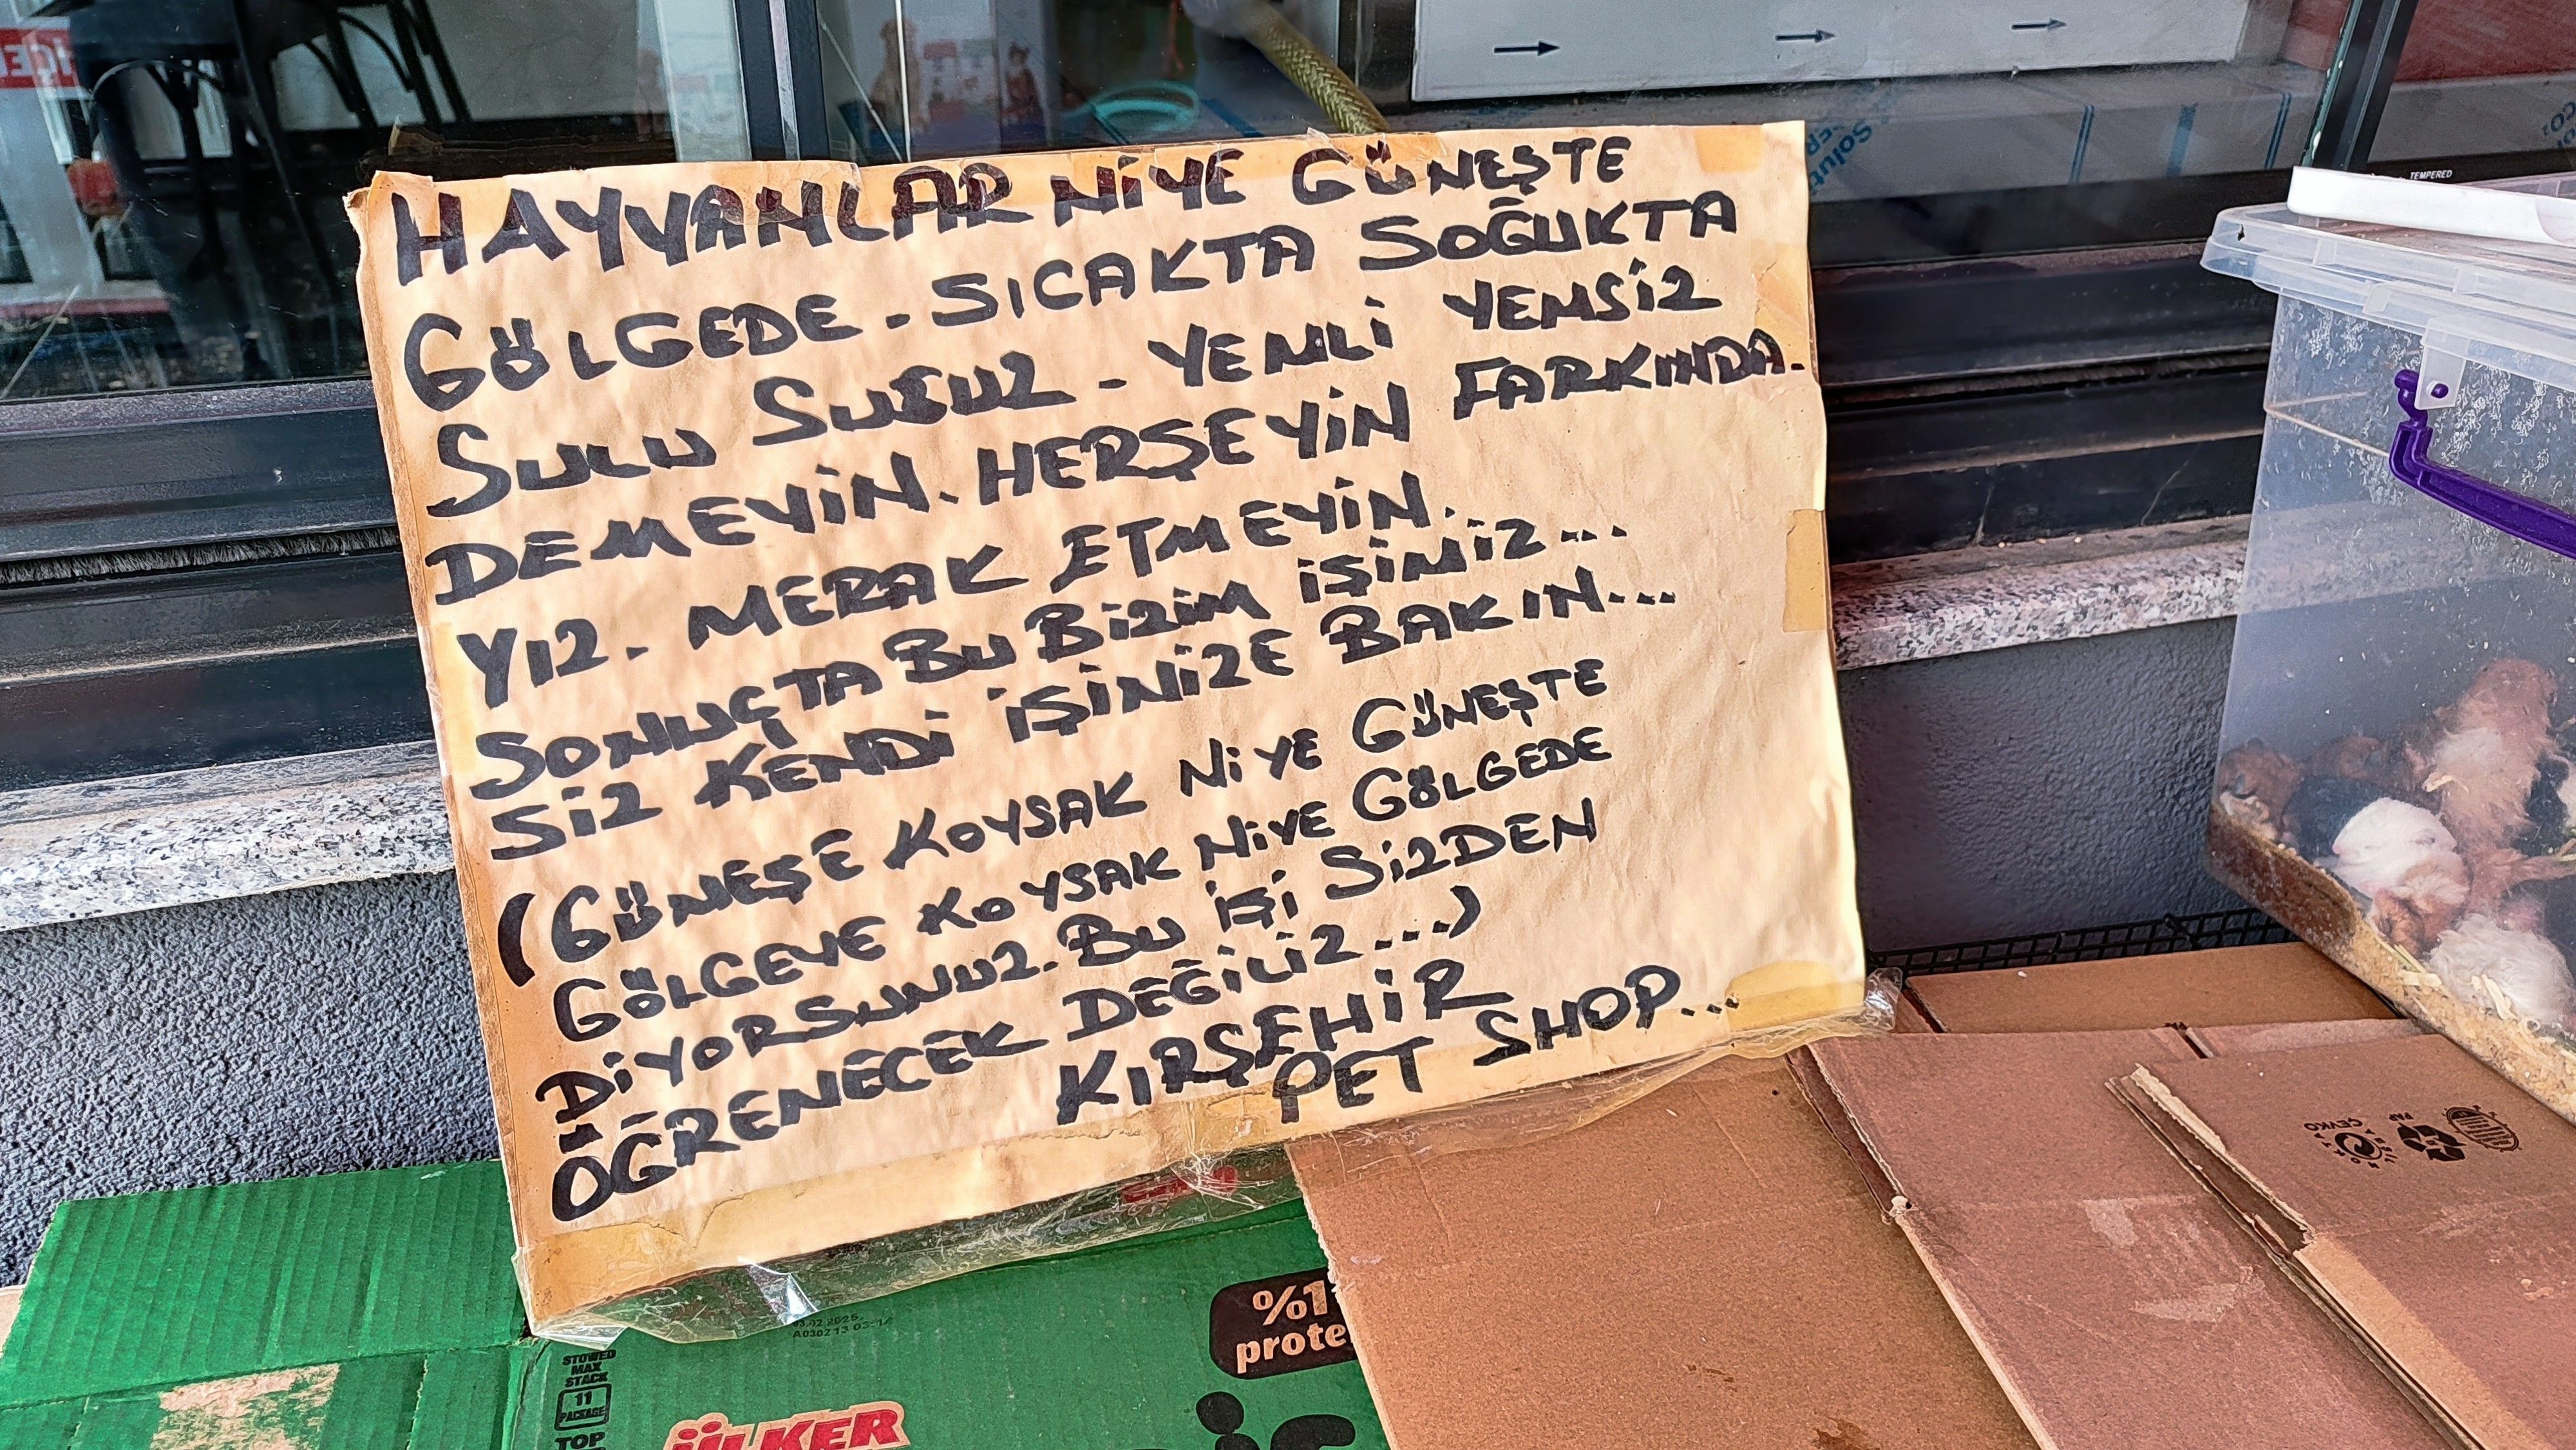 HAYVANLAR NİYE GÜNEŞTE
GÖLGEDE - SICAKTA SOĞUKTA
SULU SUSUZ - YEMLİ YEMSİZ
DEMEYİN. HERŞEYİN FARKINDA-
YIZ. MERAK ETMEYİN.
SONUÇTA BU BİZİM İŞİMİZ...
SİZ KENDİ İŞİNİZE BAKIN...
(GÜNEŞE KOYSAK NİYE GÜNEŞTE
GÖLGEYE KOYSAK NİYE GÖLGEDE
DİYORSUNUZ. BU İŞİ SİZDEN
ÖĞRENECEK DEĞİLİZ...)
KIRŞEHİR
PET SHOP...
TEMPERED
03.02.2025
STOWED
MAX
STACK
11
PACKAGE
TOP
%1
prote
ÜLKER
ÇEVKO
PAP